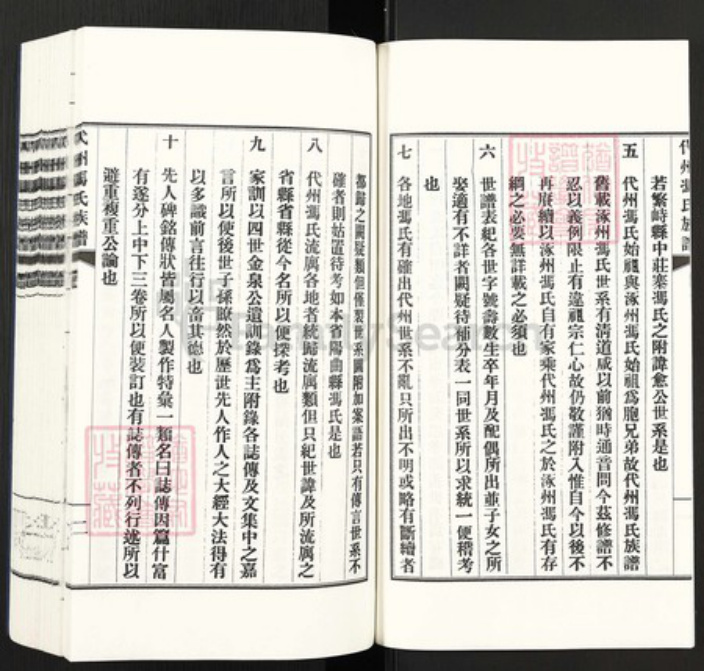 代州馮氏族譜
若繁峙縣中莊寨馮氏之附諱愈公世系是也
五 代州馮氏始祖與涿州馮氏始祖爲胞兄弟故代州馮氏族譜
舊載涿州馮氏世系有清道咸以前猶時通音問今茲修譜不
忍以義例限止有違祖宗仁心故仍敬謹附入惟自今以後不
再賡續以涿州馮氏自有家乘代州馮氏之於涿州馮氏有存
綱之必要無詳載之必須也
六 世譜表紀各世字號壽數生卒年月及配偶所出並子女之所
娶適有不詳者闕疑待補分表一同世系所以求統一便稽考
也
七 各地馮氏有確出代州世系不亂只所出不明或略有斷續者
都歸之闕疑類但僅製世系圖附加案語若只有傳言世系不
確者則姑置待考如本省陽曲縣馮氏是也
八 代州馮氏流寓各地者統歸流寓類但只紀世諱及所流寓之
省縣省縣從今名所以便探考也
九 家訓以四世金泉公遺訓錄爲主附錄各誌傳及文集中之嘉
言所以便後世子孫瞭然於歷世先人作人之大經大法得有
以多識前言往行以畜其德也
十 先人碑銘傳狀皆屬名人製作特彙一類名曰誌傳因篇什富
有遂分上中下三卷所以便裝訂也有誌傳者不列行述所以
避重複重公論也
代州馮氏族譜
FamilySearch